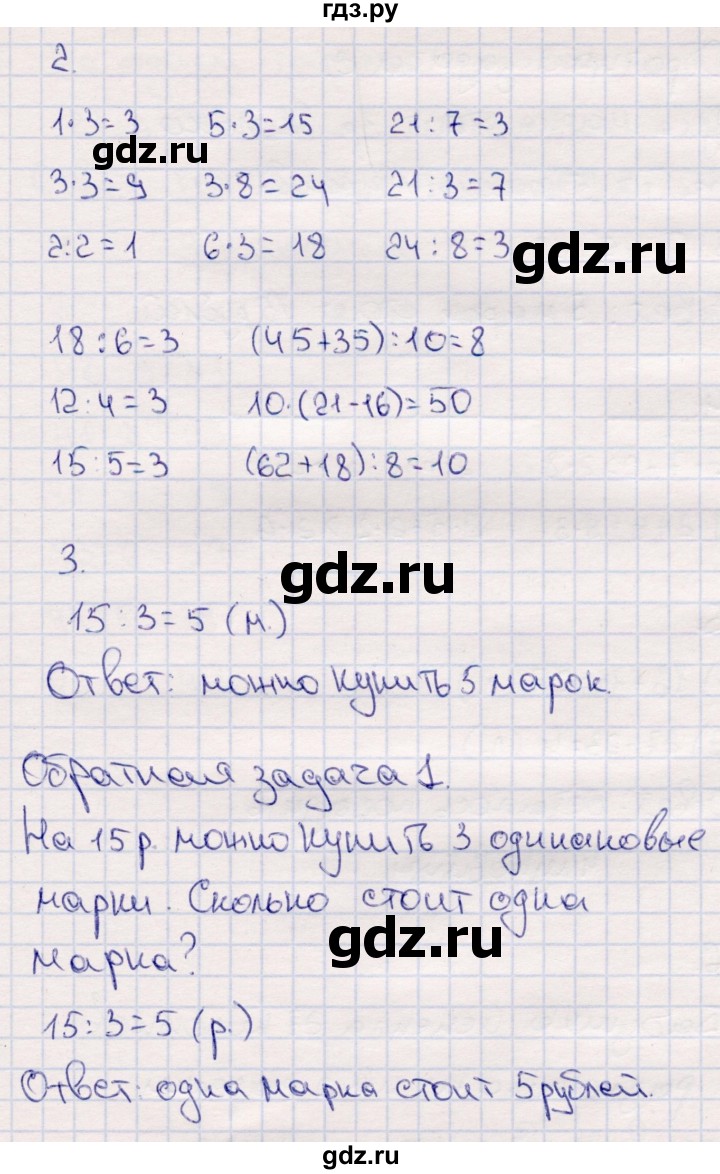 гдз.ру
2.
1·3=3 5·3=15 21:7=3
gdz.ru
3·3=9 3·8=24 21:3=7
2:2=1 6·3=18 24:8=3
gdz.ru
18:6=3 (45+35):10=8
12:4=3 10·(21-16)=50
15:5=3 (62+18):8=10
3.
gdz.ru
15:3=5 (м.)
Ответ: можно купить 5 марок.
Обратная задача 1.
На 15 р. можно купить 3 одинаковые
марки. Сколько стоит одна
gdz.ru
марка?
15:3=5 (р.)
Ответ: одна марка стоит 5 рублей.
gdz.ru